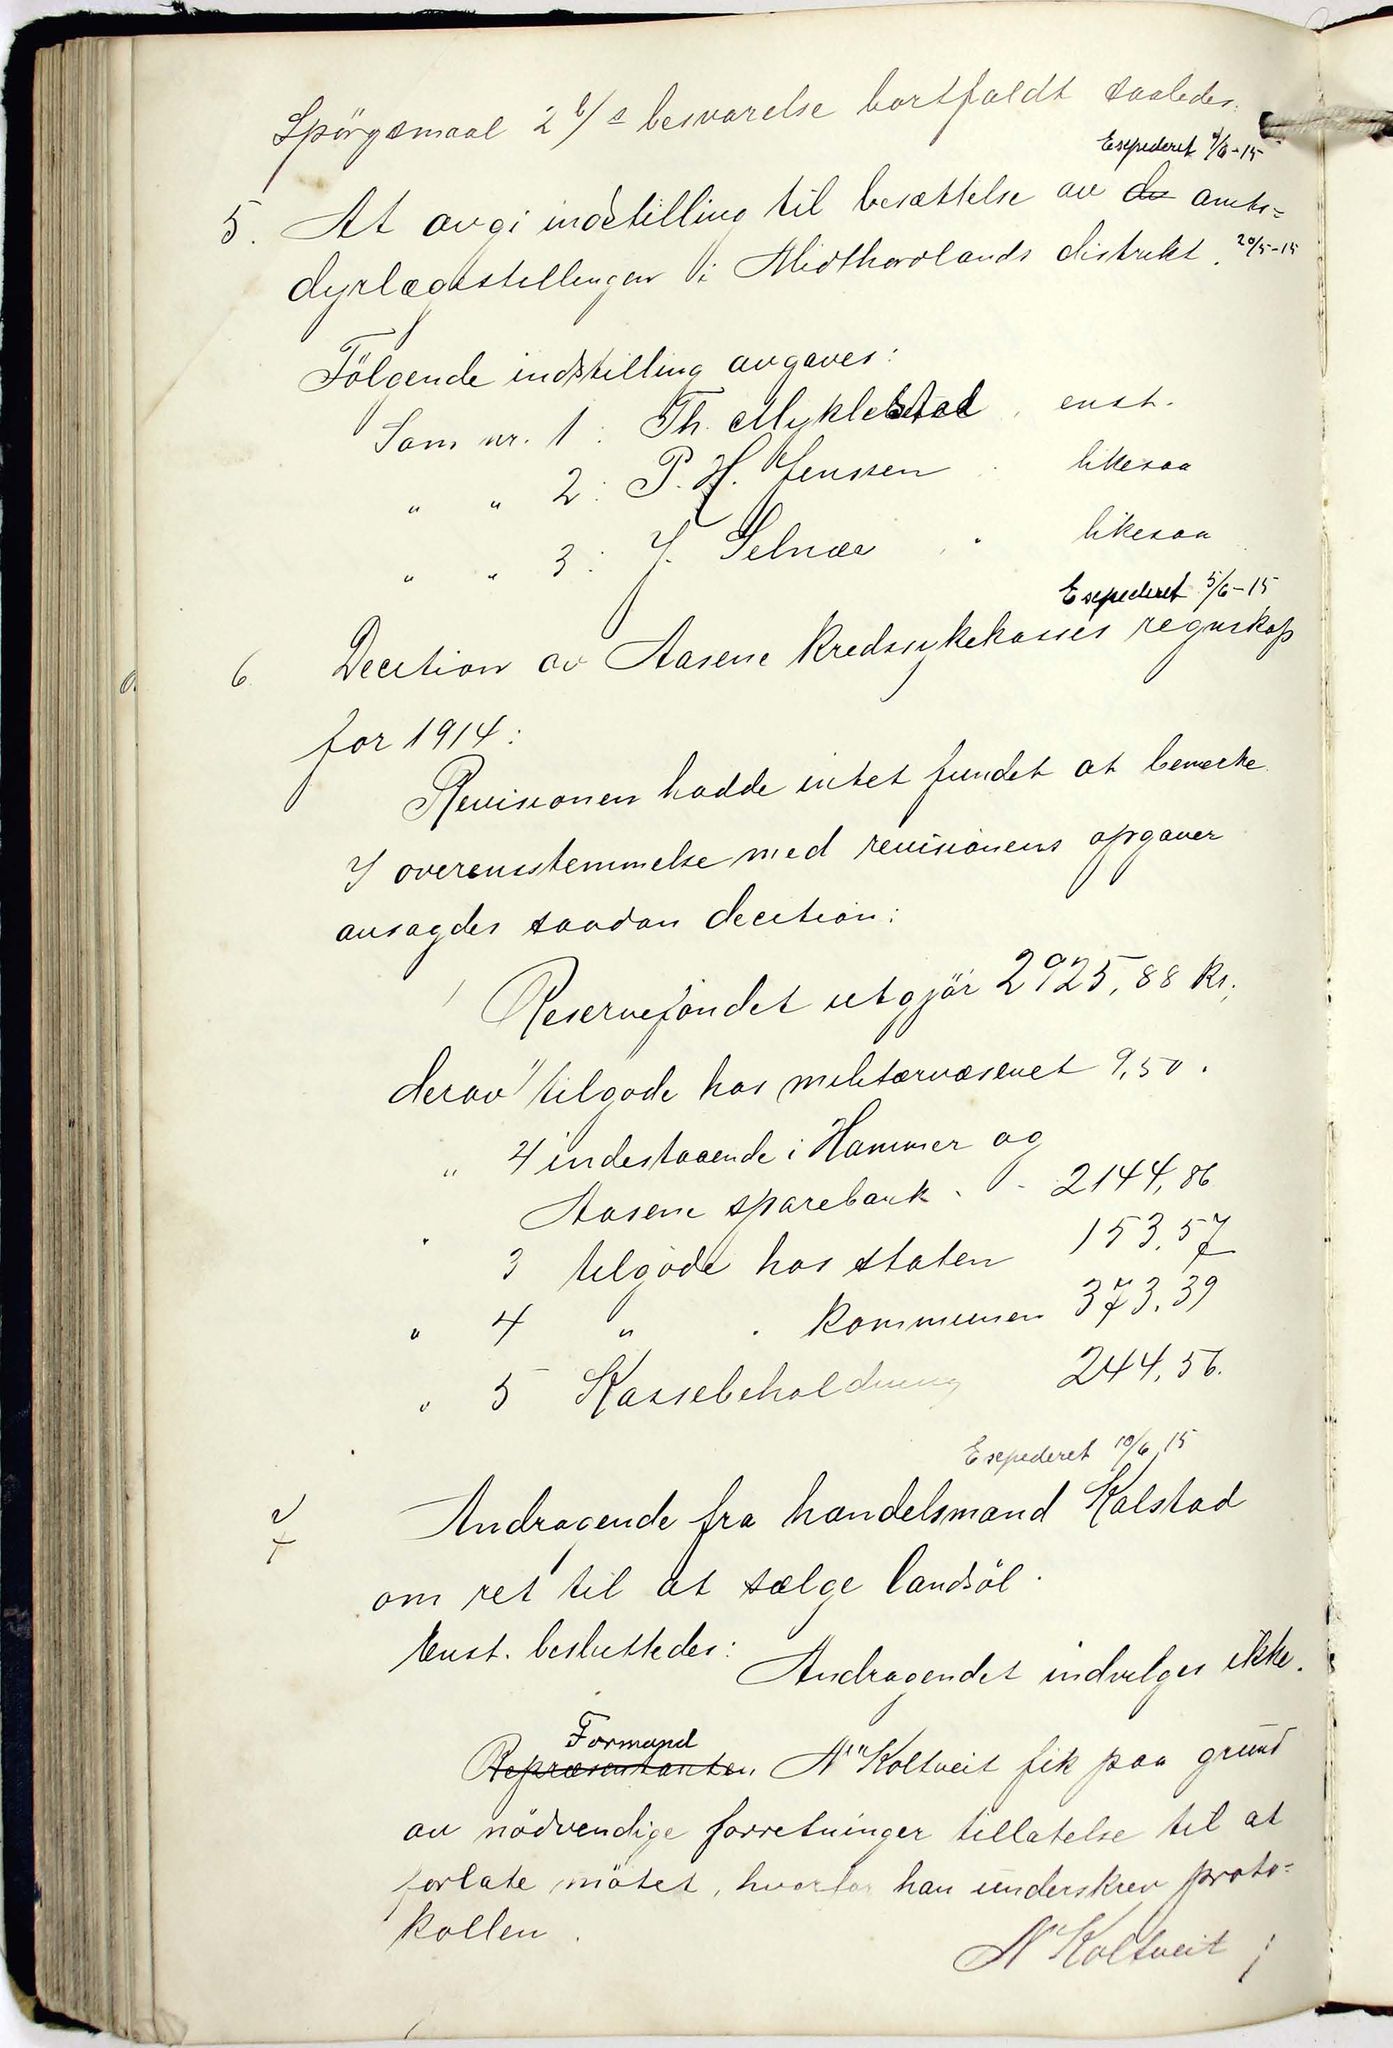 Spörgsmaal 2 b/s besvarelse bortfaldt saaledes.
Exspederet 4/6-15
5. At avgi indstilling til besættelse av de amts-
dyrlægestillingen i Midthordlands distrikt. 20/5-15
Fölgende indstilling avgaves:
Som nr. 1: Th. Myklebstad, enst.
" " 2: P. H. Jenssen likesaa
" " 3: J. Selnæs " likesaa
Exspederet 5/6-15
6. Decition av Aasene Kredssykekasses regnskap
for 1914:
Revisionen hadde intet fundet at bemerke.
I overensstemmelse med revisionens opgaver
avsagdes saadan decition:
Reservefondet utgjör 2925,88 Kr.,
derav 1/ tilgode hos militærvæsenet 9,50.
" 2/ indestaaende i Hammer og
Aasene sparebank - - 2144,86
" 3 tilgode hos staten 153,57
" 4 " " Kommunen 373,39
" 5 Kassebeholdning 244,56.
Exspederet 10/6 15
7 Andragende fra handelsmand Kalstad
om ret til at sælge landsöl.
Enst. besluttedes: Andragendet indvilges ikke.
Formand
Repræsentanten N Koltveit fik paa grund
av nödvendige forretninger tillatelse til at
forlate mötet, hvorfor han underskrev proto-
kollen.
N Koltveit